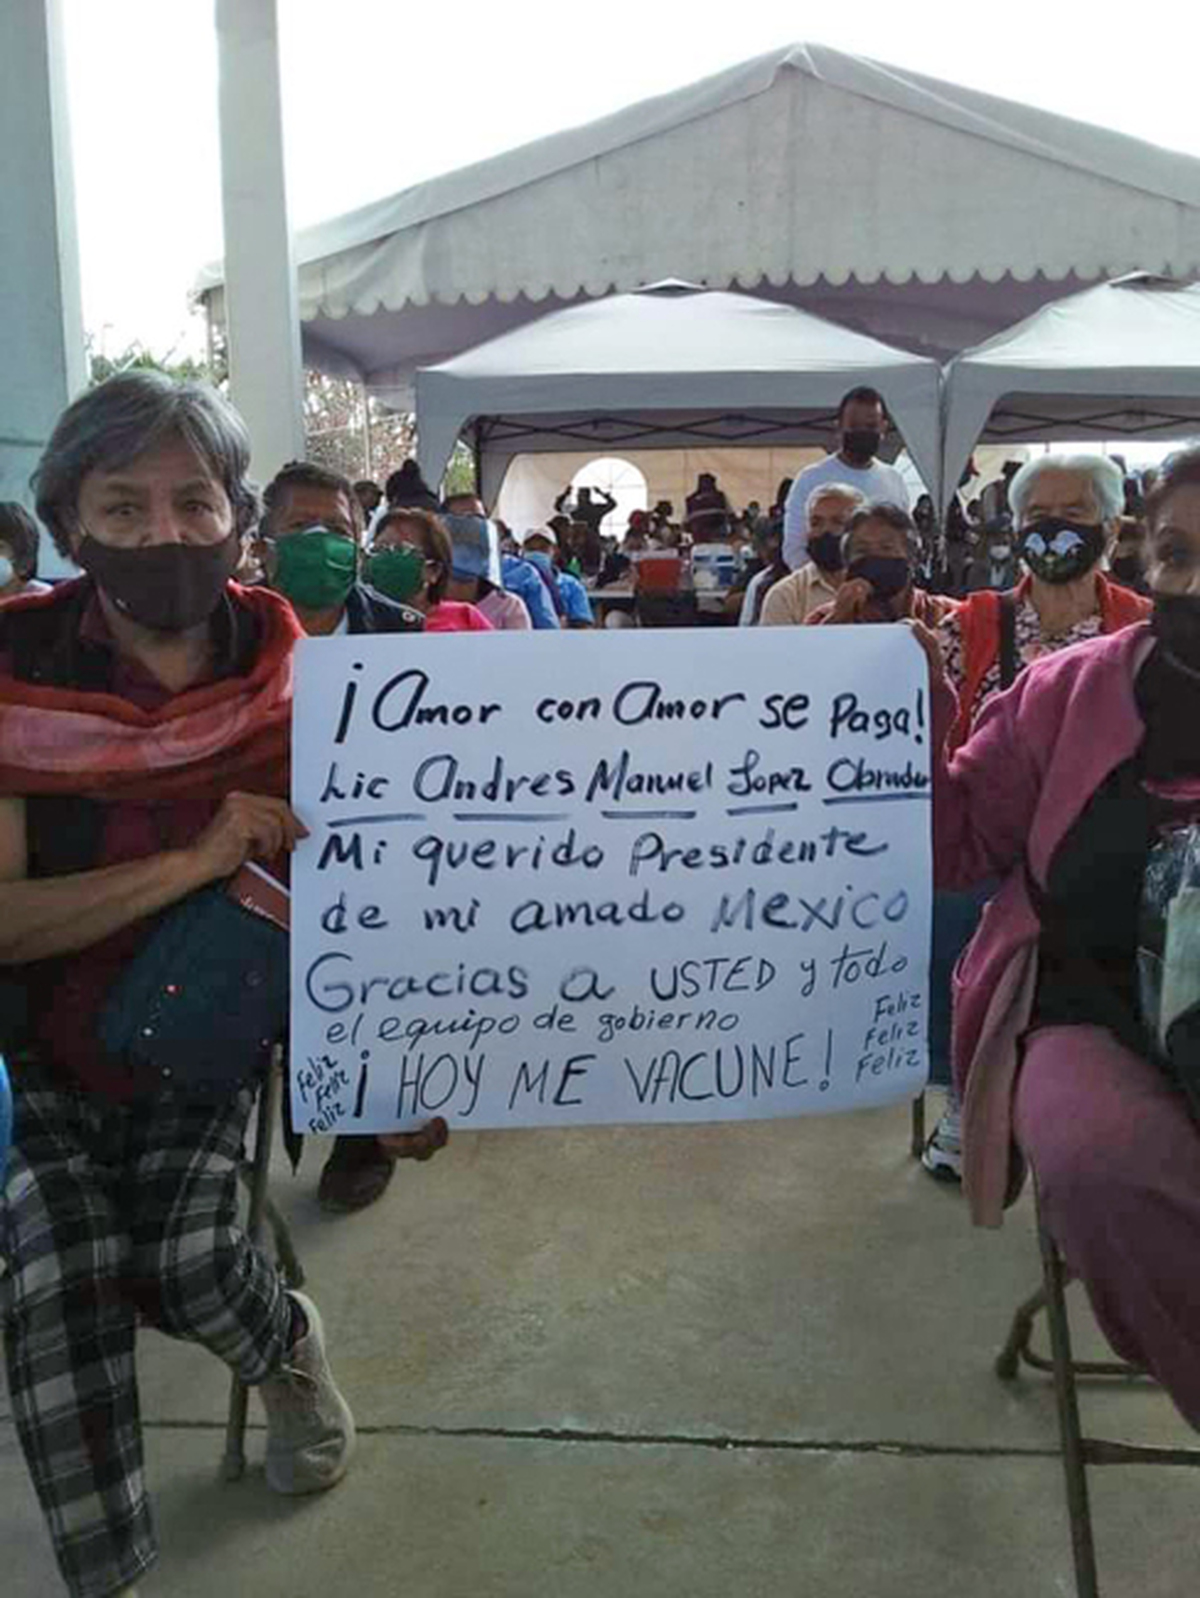 ¡Amor con Amor se Paga!
Lic Andres Manuel Lopez Obrador
Mi querido Presidente
de mi amado Mexico
Gracias a USTED y todo
el equipo de gobierno
Feliz
Feliz
Feliz
¡HOY ME VACUNE!
Feliz
Feliz
Feliz